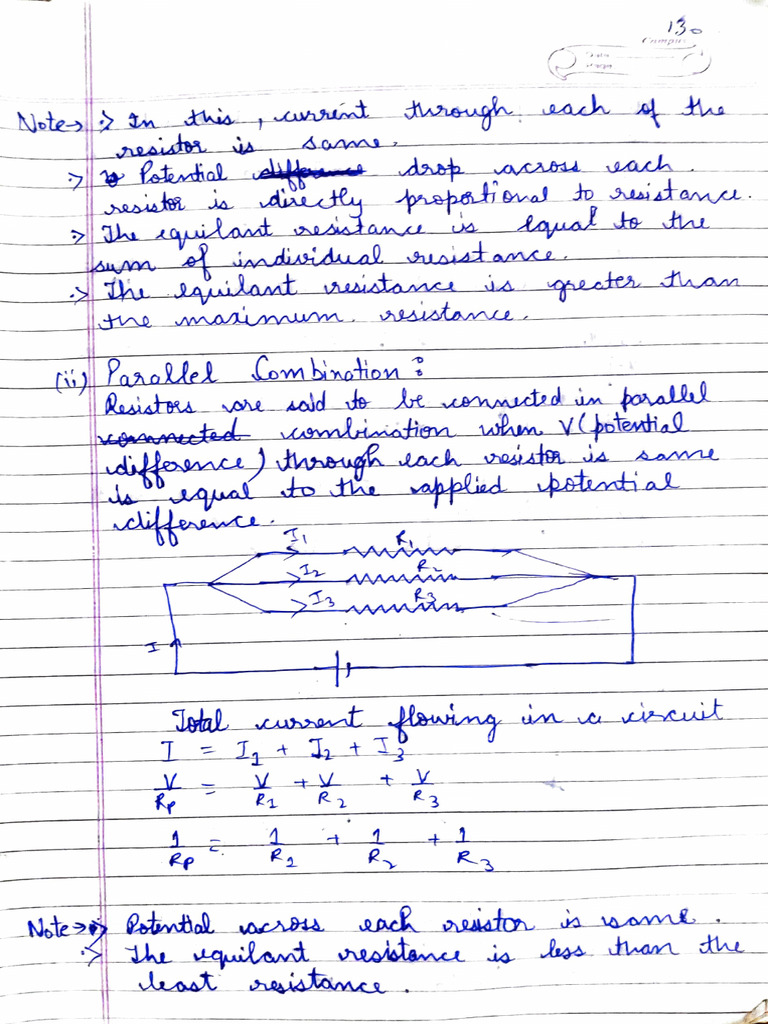 130
Note→ :> In this, current through each of the
resistor is same.
:> Potential difference drop across each
resistor is directly proportional to resistance.
:> The equilant resistance is equal to the
sum of individual resistance.
:> The equilant resistance is greater than
the maximum resistance.
(ii) Parallel Combination :
Resistors are said to be connected in parallel
connected combination when V (potential
difference) through each resistor is same
is equal to the applied potential
difference.
I1 R1
I2 R2
I3 R3
I
Total current flowing in a circuit
I = I1 + I2 + I3
V/Rp = V/R1 + V/R2 + V/R3
1/Rp = 1/R1 + 1/R2 + 1/R3
Note→ :> Potential across each resistor is same.
:> The equilant resistance is less than the
least resistance.